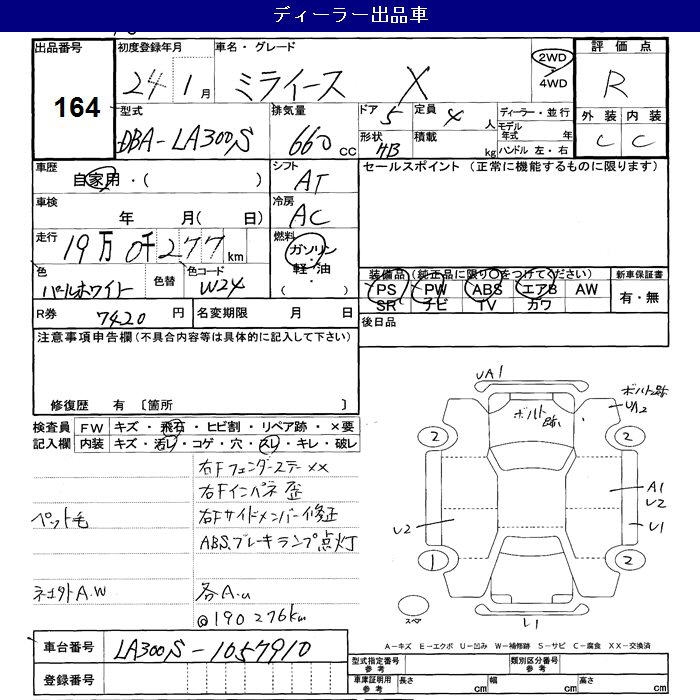 ディーラー出品車
出品番号
164
初度登録年月
24 1月
車名・グレード
ミライース X
2WD
・
4WD
評価点
R
外装 内装
C C
型式
DBA-LA300S
排気量
660 CC
ドア 5
定員 4 人
形状 HB
積載 kg
ディーラー・並行
モデル年式 年
ハンドル 左・右
車歴
自家用・( )
シフト
AT
セールスポイント (正常に機能するものに限ります)
車検
年 月( 日)
冷房
AC
走行
19万0千277km
燃料
ガソリン
・
軽・油
( )
色
パールホワイト
色替
色コード
W24
装備品(純正品に限り○をつけてください)
PS PW ABS エアB AW
SR ナビ TV カワ
新車保証書
有・無
R券 7420 円
名変期限 月 日
後日品
注意事項申告欄(不具合内容等は具体的に記入して下さい)
修復歴 有 〔箇所 〕
検査員記入欄
FW キズ・飛石・ヒビ割・リペア跡・×要
内装 キズ・汚レ・コゲ・穴・スレ・キレ・破レ
右Fフェンダーステー××
右Fインパネ歪
ペット毛
右Fサイドメンバー修正
ABS、ブレーキランプ点灯
ネエ外A.W
各A.U
@190276km
UA1
ボルト跡
ボルト跡
UA2
2 2
A1
U2
U2
U1
1 2
スペア
L1
A-キズ E-エクボ U-凹み W-補修跡 S-サビ C-腐食 XX-交換済
車台番号
LA300S-1057910
登録番号
型式指定番号 参考
類別区分番号 参考
車庫証明用 参考
長さ cm
幅 cm
高さ cm